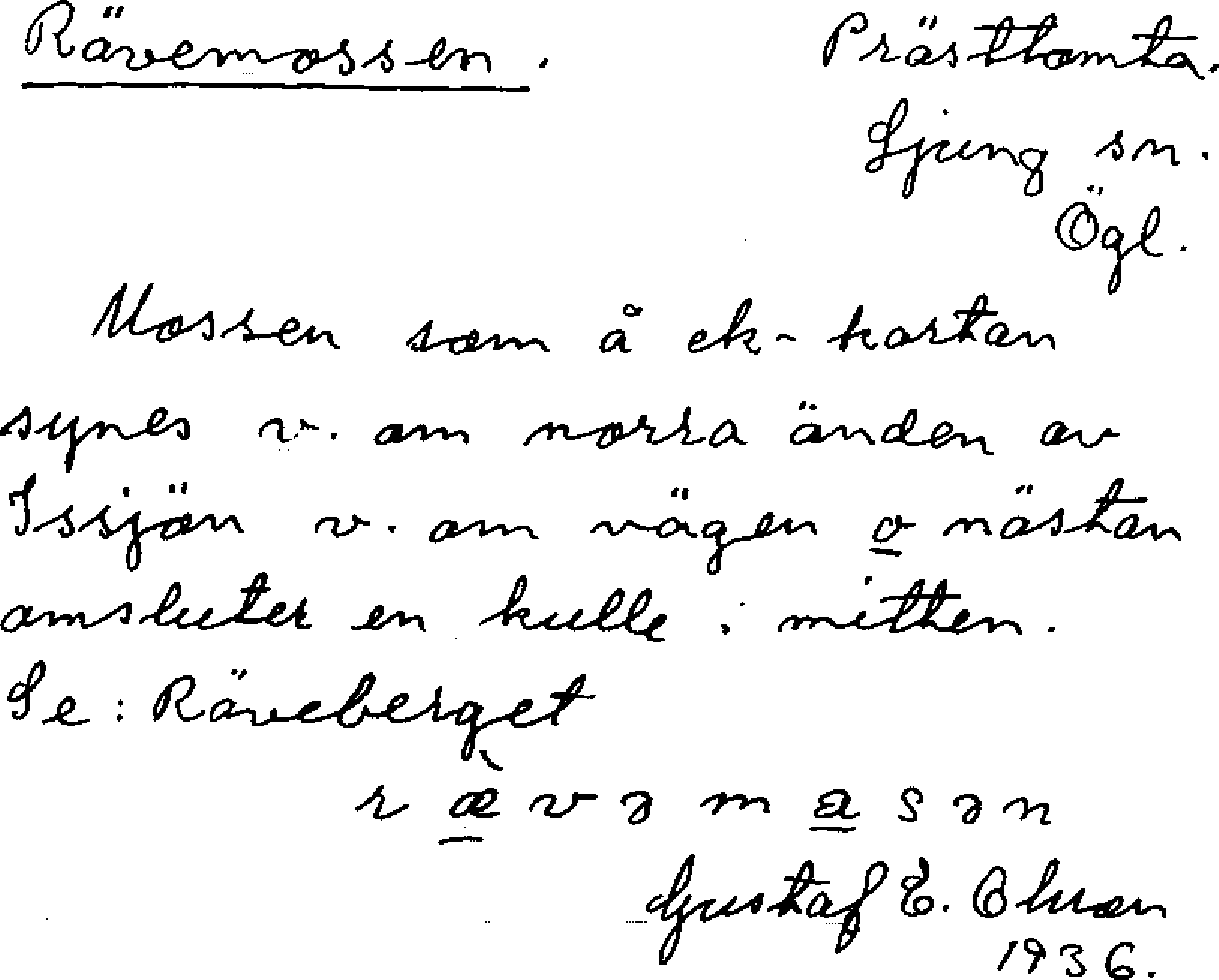 Rävemossen. Prästtomta.
Ljung sn.
Ögl.
Mossen som å ek-kartan
synes v. om norra änden av
Issjön v. om vägen o nästan
omsluter en kulle i mitten.
Se: Räveberget
r æ̀ v ə m a s ə n
Gustaf E.
1936.